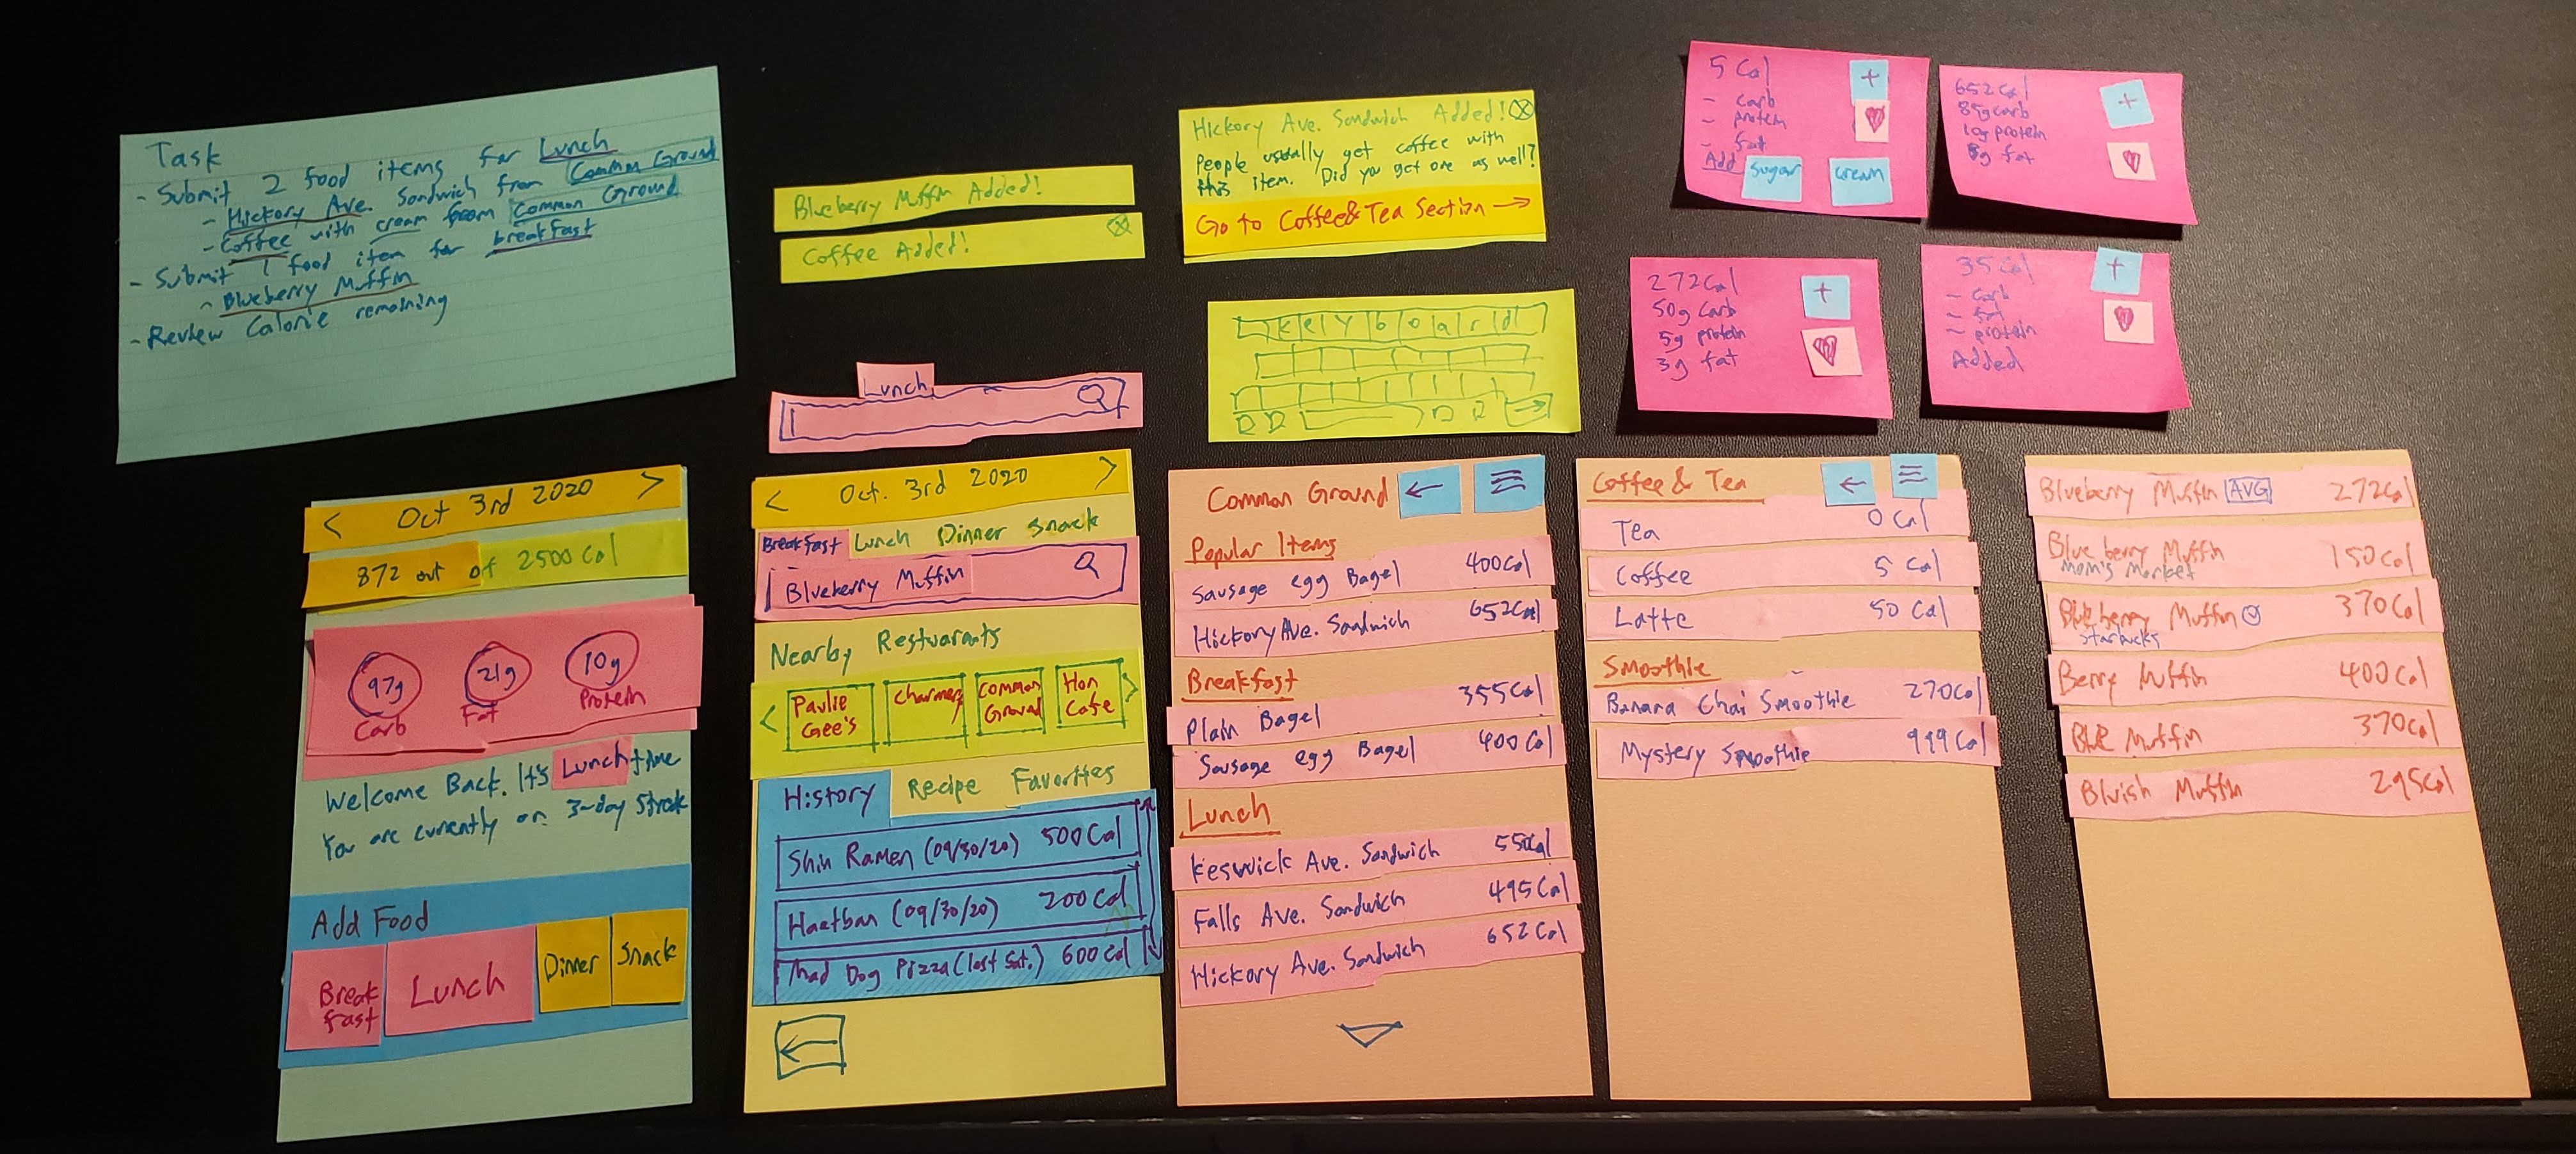 Task
- Submit 2 food items for Lunch
- Hickory Ave. Sandwich from Common Ground
- Coffee with cream from Common Ground
- Submit 1 food item for breakfast
- Blueberry Muffin
- Review Calorie remaining
Blueberry Muffin Added!
Coffee Added!
Hickory Ave. Sandwich Added!
People usually get coffee with
this item. Did you get one as well?
Go to Coffee & Tea Section →
5 Cal
- carb
- protein
- fat
Add Sugar cream
+
652 Cal
85g carb
10g protein
g fat
+
272 Cal
50g carb
5g protein
3g fat
+
35 Cal
- carb
- fat
- protein
Added
+
Lunch
keyboard
< Oct 3rd 2020 >
872 out of 2500 Cal
97g 21g 10g
Carb Fat Protein
Welcome Back. It's Lunch time
You are currently on 3-day Streak
Add Food
Break fast
Lunch
Dinner
Snack
< Oct. 3rd 2020 >
Breakfast Lunch Dinner Snack
Blueberry Muffin
Nearby Restuarants
< Paulie Gee's
Charmery
Common Ground
Hon Cafe >
History Recipe Favorites
Shin Ramen (09/30/20) 500 Cal
Haetban (09/30/20) 200 Cal
Mad Dog Pizza (last Sat.) 600 Cal
←
Common Ground ←
Popular Items
Sausage egg Bagel 400 Cal
Hickory Ave. Sandwich 652 Cal
Breakfast
Plain Bagel 355 Cal
Sausage egg Bagel 400 Cal
Lunch
Keswick Ave. Sandwich 550 Cal
Falls Ave. Sandwich 495 Cal
Hickory Ave. Sandwich 652 Cal
Coffee & Tea ←
Tea 0 Cal
Coffee 5 Cal
Latte 50 Cal
Smoothie
Banana Chai Smoothie 270 Cal
Mystery Smoothie 999 Cal
Blueberry Muffin AVG 272 Cal
Blueberry Muffin 150 Cal
Mom's Market
Blueberry Muffin 370 Cal
Starbucks
Berry Muffin 400 Cal
Muffin 370 Cal
Bluish Muffin 295 Cal